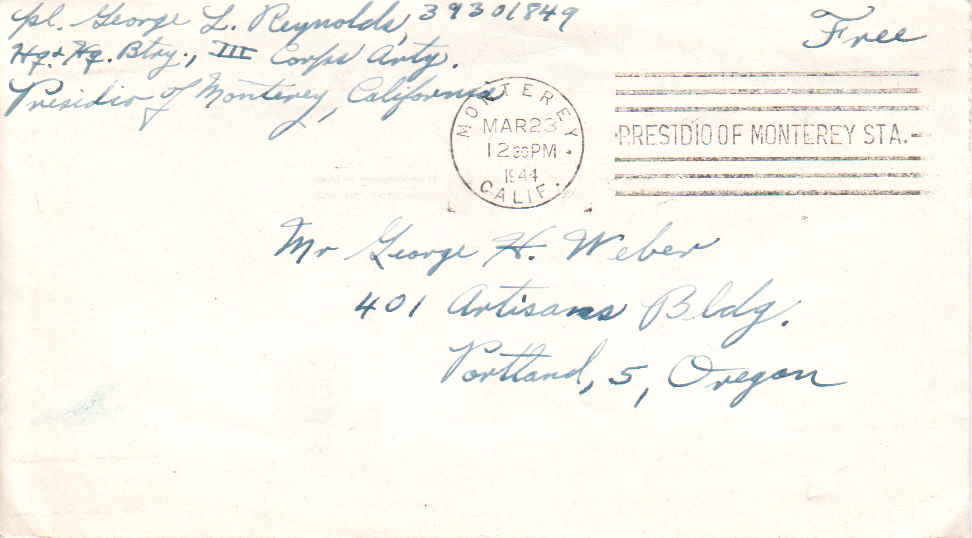 Cpl. George L. Reynolds, 39301849
Hq. & Hq. Btry., III Corps Arty.
Presidio of Monterey, California
Free
MONTEREY
MAR 23
12 30 PM
1944
CALIF.
PRESIDIO OF MONTEREY STA.
Mr George H. Weber
401 Artisans Bldg.
Portland, 5, Oregon